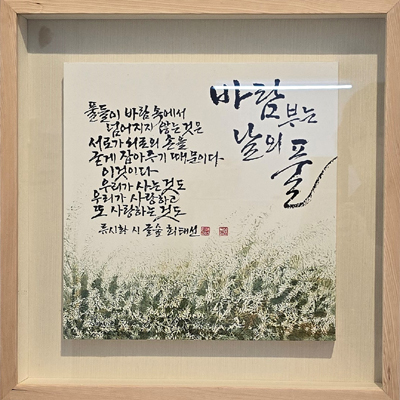 바람 부는
날의 풀
풀들이 바람 속에서
넘어지지 않는 것은
서로가 서로의 손을
굳게 잡아주기 때문이다
이것이다
우리가 사는 것도
우리가 사랑하고
또 사랑하는 것도
류시화 시 글숲 최태선